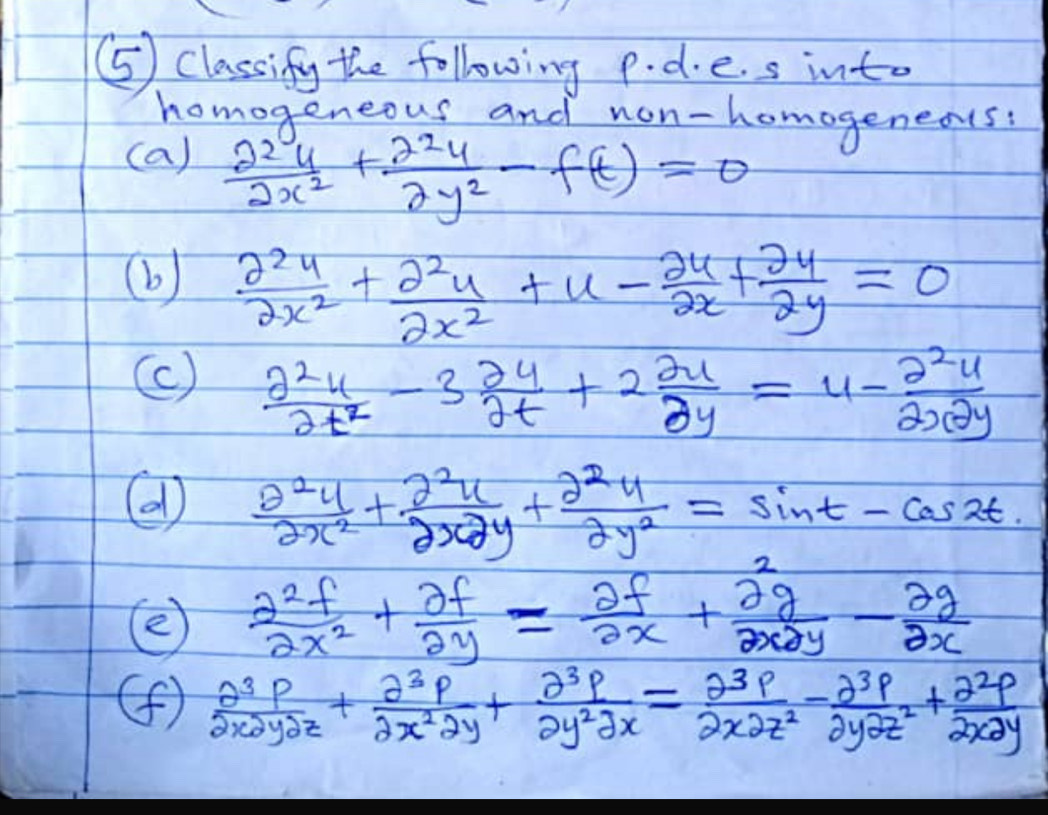 (5) Classify the following p.d.e.s into
homogeneous and non-homogeneous:
(a) ∂²u/∂x² + ∂²u/∂y² - f(t) = 0
(b) ∂²u/∂x² + ∂²u/∂x² + u - ∂u/∂x + ∂u/∂y = 0
(c) ∂²u/∂t² - 3 ∂u/∂t + 2 ∂u/∂y = u - ∂²u/∂x∂y
(d) ∂²u/∂x² + ∂²u/∂x∂y + ∂²u/∂y² = sint - cos2t.
(e) ∂²f/∂x² + ∂f/∂y = ∂f/∂x + ∂²g/∂x∂y - ∂g/∂x
(f) ∂³p/∂x∂y∂z + ∂³p/∂x²∂y + ∂³p/∂y²∂x = ∂³p/∂x∂z² - ∂³p/∂y∂z² + ∂²p/∂x∂y